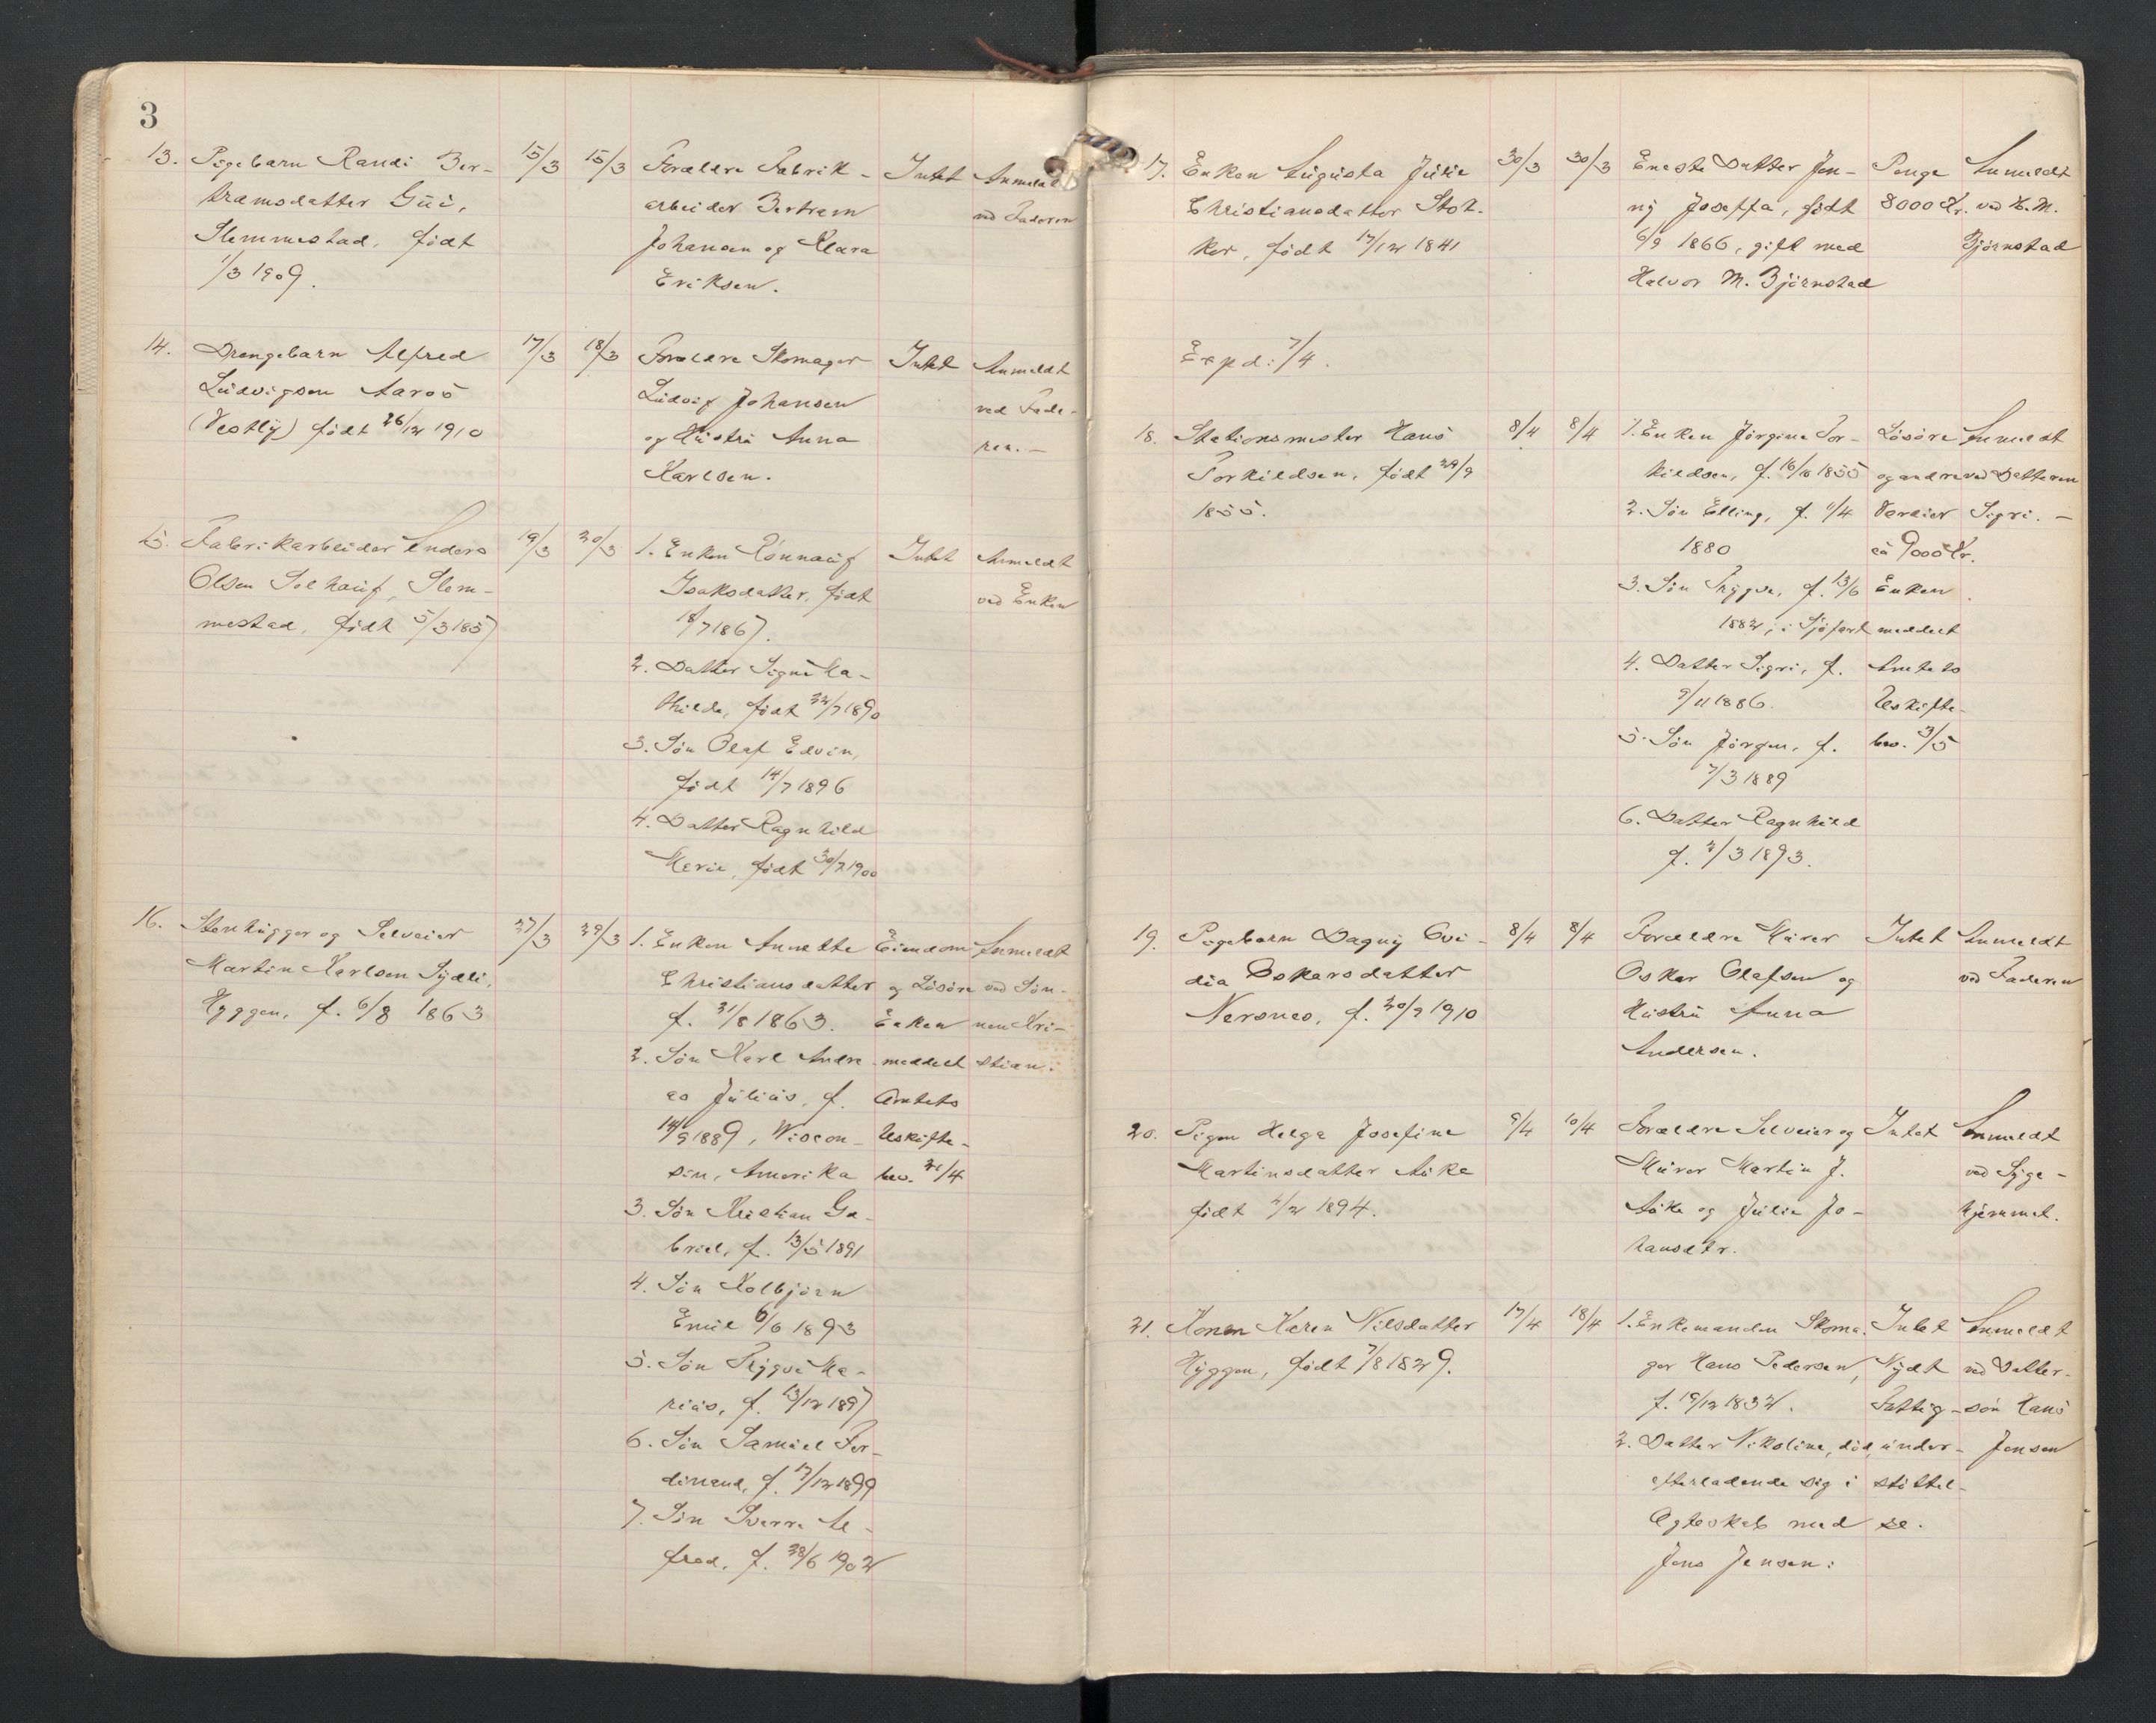 3
13. Pigebarn Randi Ber- 15/3 15/3 Forældre Fabrik- Intet Anmeldt
tramsdatter Gui, arbeider Bertram ved Faderen
Slemmestad, født Johansen og Klara
1/3 1909. Eriksen.
14. Drengebarn Alfred 17/3 18/3 Forældre Skomager Intet Anmeldt
Ludvigsen Aaros Ludvig Johansen ved Fade-
(Vestly) født 26/12 1910 og Hustru Anna ren. -
Karlsen.
15. Fabrikarbeider Anders 19/3 20/3 1. Enken Rønnaug Intet Anmeldt
Olsen Solhaug, Slem- Isaksdatter, født ved Enken
mestad, født 5/3 1857 18/7 1867.
2. Datter Signe Ma-
thilde, født 22/7 1890
3. Søn Olaf Edvin,
født 14/7 1896
4. Datter Ragnhild
Marie, født 30/7 1900
16. Stenhugger og Selveier 27/3 29/3 1. Enken Anette Eiendom Anmeldt
Martin Karlsen Sydli, Christiansdatter og Løsøre ved Søn-
Hyggen, f. 6/8 1863 f. 31/8 1863. Enken nen Kri-
2. Søn Karl Andre- meddelt stian.
as Julius, f. Amtets
14/9 1889, Wiscon- Uskifte-
sin, Amerika bev. 21/4
3. Søn Kristian Ga-
briel, f. 13/5 1891
4. Søn Kolbjørn
Emil 6/6 1893
5. Søn Trygve Ma-
rius, f. 13/12 1897
6. Søn Samuel Fer-
dinand, f. 17/12 1899
7. Søn Sverre Al-
fred, f. 28/6 1902
17. Enken Augusta Julie 30/3 30/3 Eneste Datter Jen- Penge Anmeldt
Christiansdatter Stok- ny Josefa, født 8000 Kr. ved H. M.
ker, født 17/12 1841 6/9 1866, gift med Bjørnstad
Halvor M. Bjørnstad
Expd: 7/4.
18. Stationsmester Hans 8/4 8/4 1. Enken Jørgine Tor- Løsøre Anmeldt
Torkildsen, født 29/9 kildsen, f. 16/10 1855 og andre ved Datteren
1855. 2. Søn Elling, f. 11/4 Værdier Sigri. -
1880 ca 9000 Kr.
3. Søn Trygve, f. 13/6 Enken
1882, i Sjøfart meddelt
4. Datter Sigri, f. Amtets
9/11 1886. Uskifte-
5. Søn Jørgen, f. bev. 3/5
7/3 1889
6. Datter Ragnhild
f. 3/3 1893.
19. Pigebarn Dagny Ovi- 8/4 8/4 Forældre Murer Intet Anmeldt
dia Oskarsdatter Oskar Olafsen og ved Faderen
Nersnes, f. 20/9 1910 Hustru Anna
Andersen.
20. Pigen Helga Josefine 9/4 10/4 Forældre Selveier og Intet Anmeldt
Martinsdatter Auke Murer Martin J. ved Syge-
født 2/2 1894. Auke og Julie Jo- hjemmet.
hansdtr.
21. Konen Karen Nilsdatter 17/4 18/4 1. Enkemanden Skoma- Intet Anmeldt
Hyggen, født 7/8 1829. ger Hans Pedersen, Nydt ved Datter-
f. 19/12 1832. Fattig- søn Hans
2. Datter Nikoline, død, under- Jensen
efterladende sig i støttel-
Egteskab med se.
Jens Jensen: